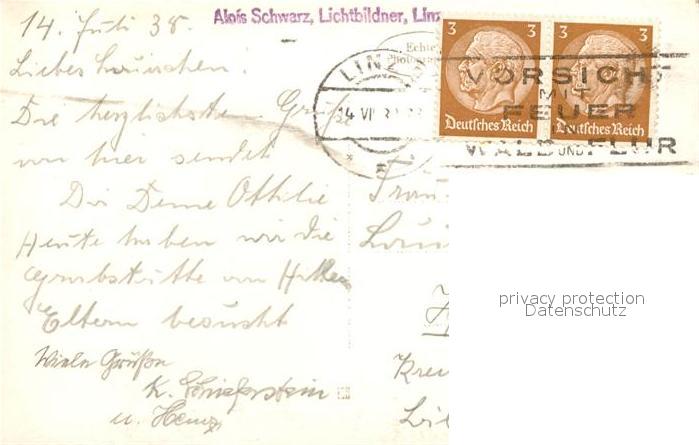 Alois Schwarz, Lichtbildner, Linz
14. Juli 38.
Liebes Louischen!
Die herzlichsten Grüße
von hier sendet
Dir Deine Ottilie
Heute haben wir die
Grabstätte von Hitlers
Eltern besucht
Viele Grüße
K.
u. Heinz
Echte
LINZ
14 VII 38
3 3
Deutsches Reich
3 3
Deutsches Reich
VORSICHT
MIT
FEUER
WALD UND FLUR
privacy protection
Datenschutz